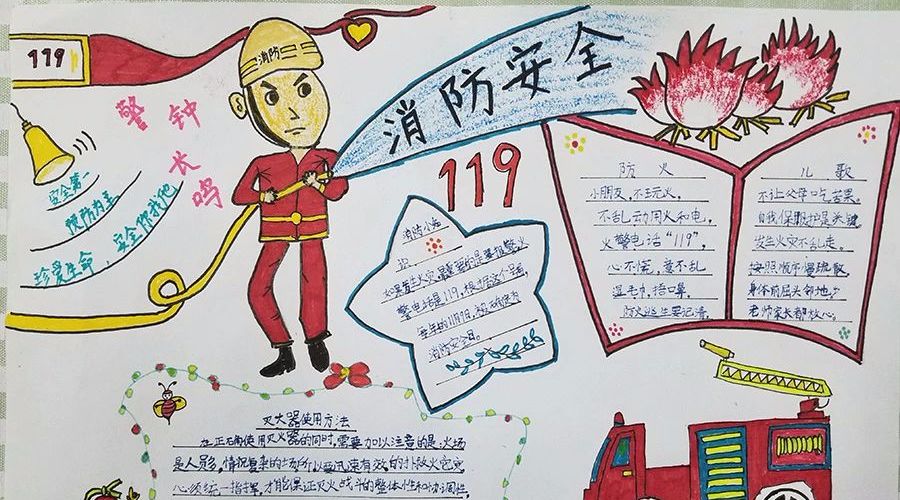 119
消防
消防安全
119
警钟长鸣
安全第一
预防为主
珍爱生命，安全伴我他
消防小知
识
警电话是119，根据这个号码，
每年的11月9日，被确健为
消防安全日。
防火
小朋友，不玩火，
不乱动用火和电，
火警电话“119”，
心不慌，意不乱
湿毛巾，捂口鼻，
防火逃生要记清
儿歌
不让父母吃苦果
自我保护是关键
发生火灾不乱走，
按照顺序慢疏散
身体前屈头部地，
老师家长都放心。
灭火器使用方法
在正确使用灭火器的同时，需要加以注意的是：火场
是人员多，情况复杂的场所以要迅速有效的扑救火灾灾
必须统一指挥，才能保证灭火战斗的整体性和协调性